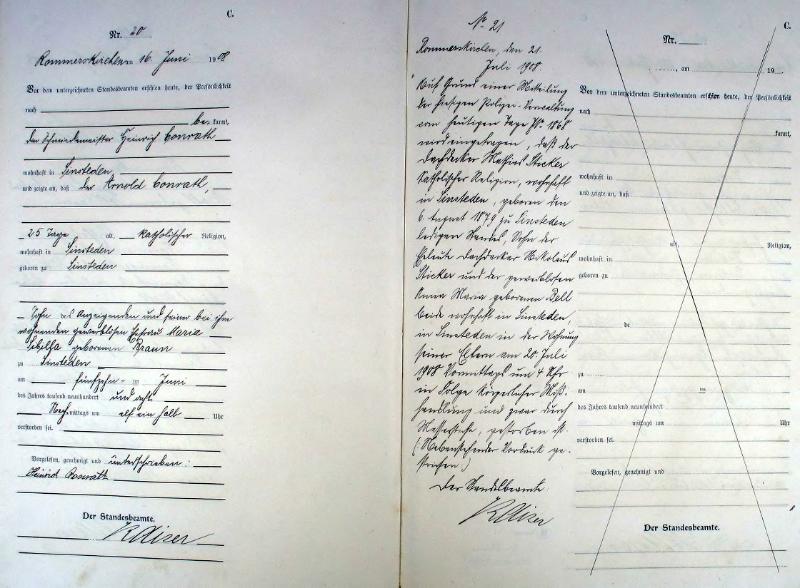 C.
Nr. 20
Rommerskirchen am 16. Juni 1908
Vor dem unterzeichneten Standesbeamten erschien heute, der Persönlichkeit
nach
bekannt,
der Schmiedemeister Heinrich Conrath
wohnhaft in Sinsteden
und zeigte an, daß der Arnold Conrath,
25 Tage alt, katholischer Religion,
wohnhaft in Sinsteden
geboren zu Sinsteden
Sohn des Anzeigenden und seiner bei ihm
wohnenden gewerblosen Ehefrau Maria
Sibilla geborenen Braun
zu Sinsteden
am fünfzehnten Juni
des Jahres tausend neunhundert und acht
Nachmittags um elf ein halb Uhr
verstorben sei.
Vorgelesen, genehmigt und unterschrieben:
Heinrich Conrath
Der Standesbeamte.
Kaiser
No 21
Rommerskirchen, den 21.
Juli 1908
Auf Grund einer Mitteilung
der hiesigen Polizei-Verwaltung
vom heutigen Tage No 1868
wird eingetragen, daß der
Dachdecker Mathias Sticker
katholischer Religion, wohnhaft
in Sinsteden, geboren den
6 August 1879 zu Sinsteden
ledigen Standes, Sohn der
Eheleute Dachdecker Nikolaus
Sticker und der gewerblosen
Anna Maria geborenen Bell
beide wohnhaft in Sinsteden,
in Sinsteden in der Wohnung
seiner Eltern am 20 Juli
1908 Vormittags um 4 Uhr
in Folge körperlicher Miß-
handlung und zwar durch
Messerstiche, gestorben ist.
(Nebenstehender Vordruck ge-
strichen.)
Der Standesbeamte
Kaiser
C.
Nr.
, am 19
Vor dem unterzeichneten Standesbeamten erschien heute, der Persönlichkeit
nach
kannt,
wohnhaft in
und zeigte an, daß
alt, Religion,
wohnhaft in
geboren zu
de
zu
am ten
des Jahres tausend neunhundert
mittags um Uhr
verstorben sei.
Vorgelesen, genehmigt und
Der Standesbeamte.